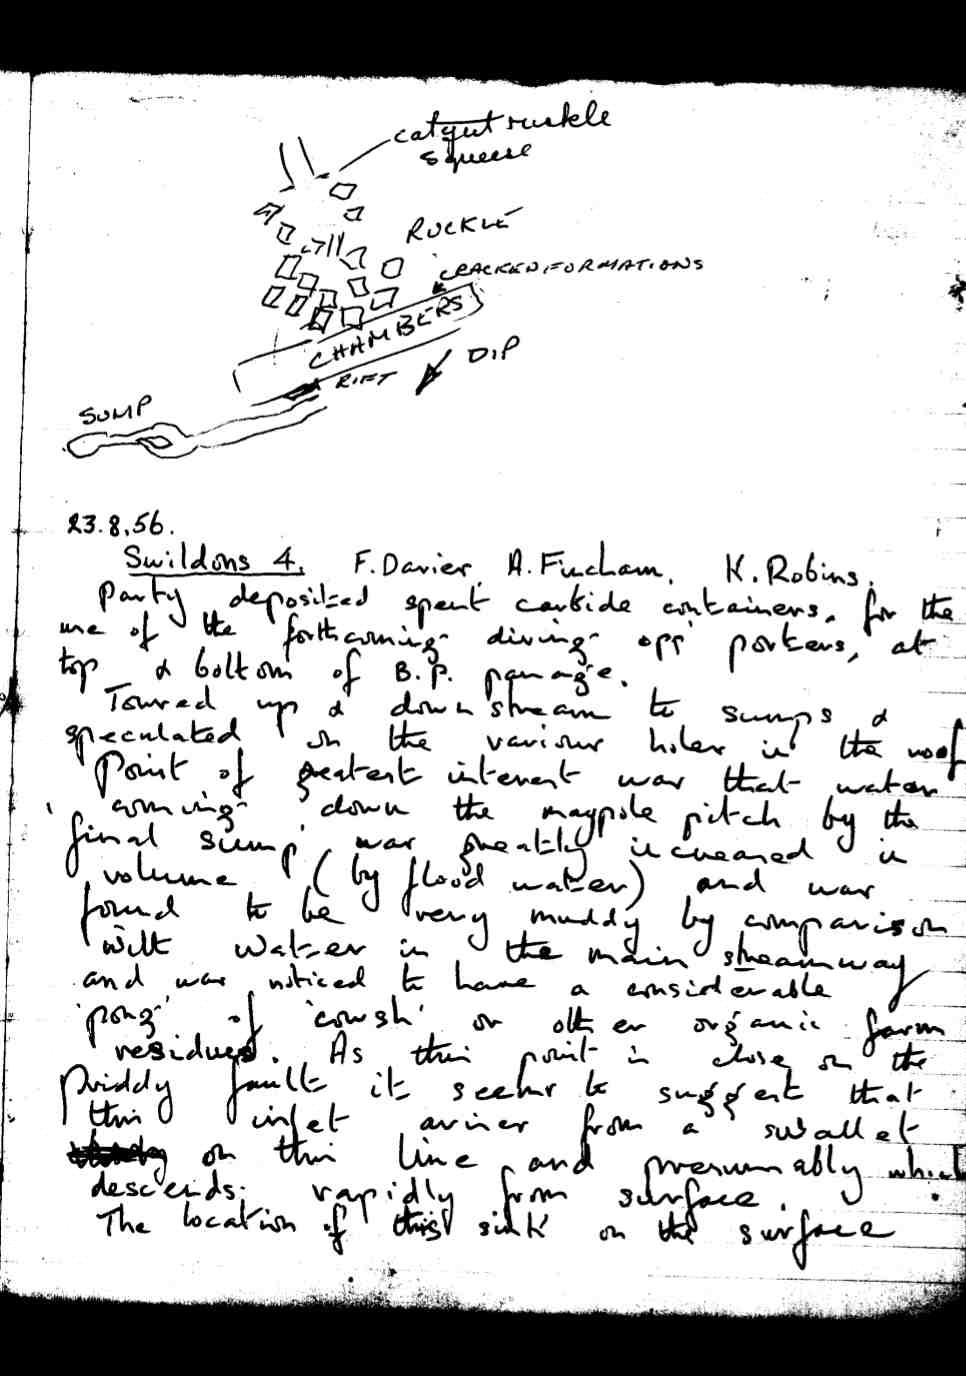 catgut ruckle
squeese
RUCKLE
CRACKED FORMATIONS
CHAMBERS
DIP
RIFT
SUMP
23.8.56.
Swildons 4. F. Davies, A. Fincham, K. Robins.
Party deposited spent carbide containers, for the
use of the forthcoming diving opp porters, at
top & bottom of B.P. passage.
Toured up & down stream to sumps &
speculated on the various holes in the roof
Point of greatest interest was that water
coming down the maypole pitch by the
final sump was greatly increased in
volume (by flood water) and was
found to be very muddy by comparison
with water in the main streamway
and was noticed to have a considerable
'pong' of 'cowsh' or other organic farm
residues. As this point is close on the
Priddy fault it seems to suggest that
this inlet arises from a swallet
on this line and presumably which
descends rapidly from surface.
The location of this sink on the surface